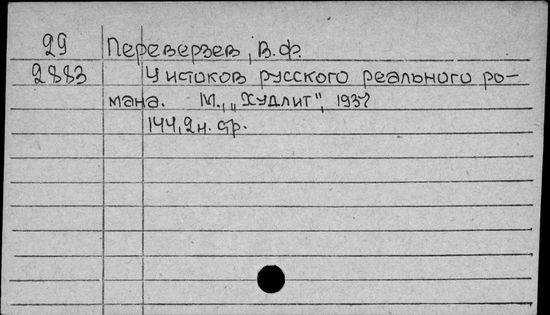 29 Переверзев, В.Ф.
2883 У истоков русского реального ро-
мана. М., „Худлит", 1937
144, 2 н. стр.